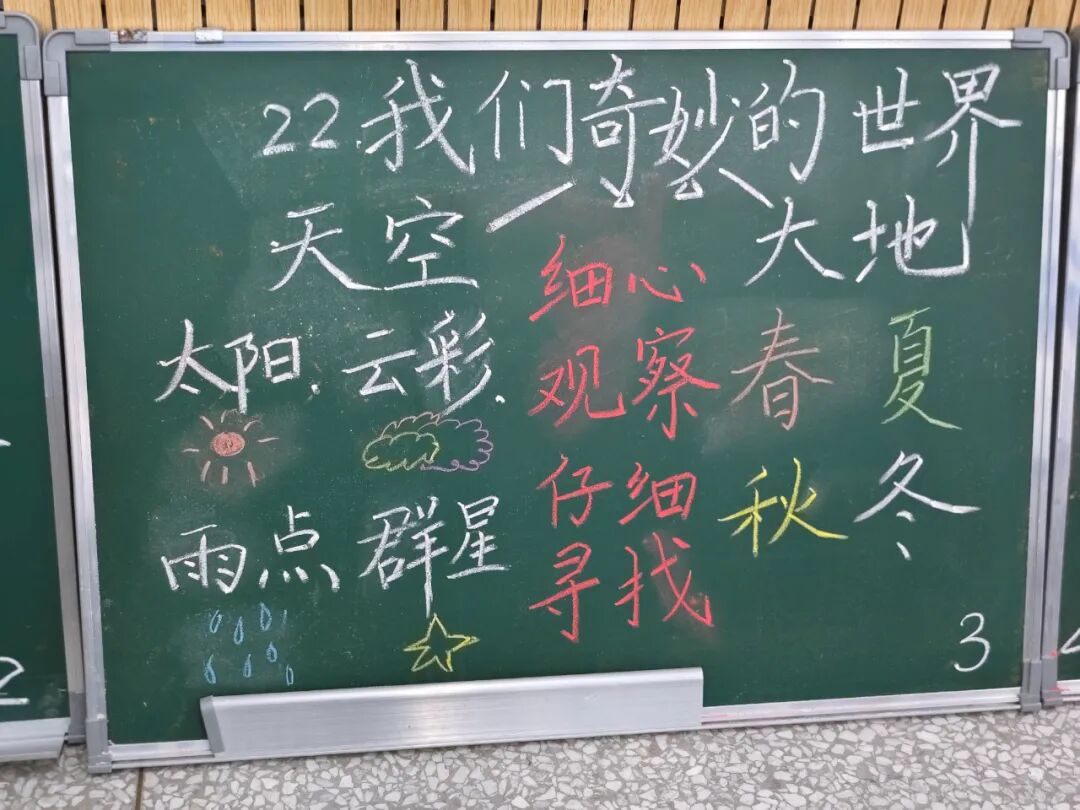 22.我们奇妙的世界
天空
大地
太阳、云彩、
雨点 群星
细心
观察
仔细
寻找
春 夏
秋 冬
3